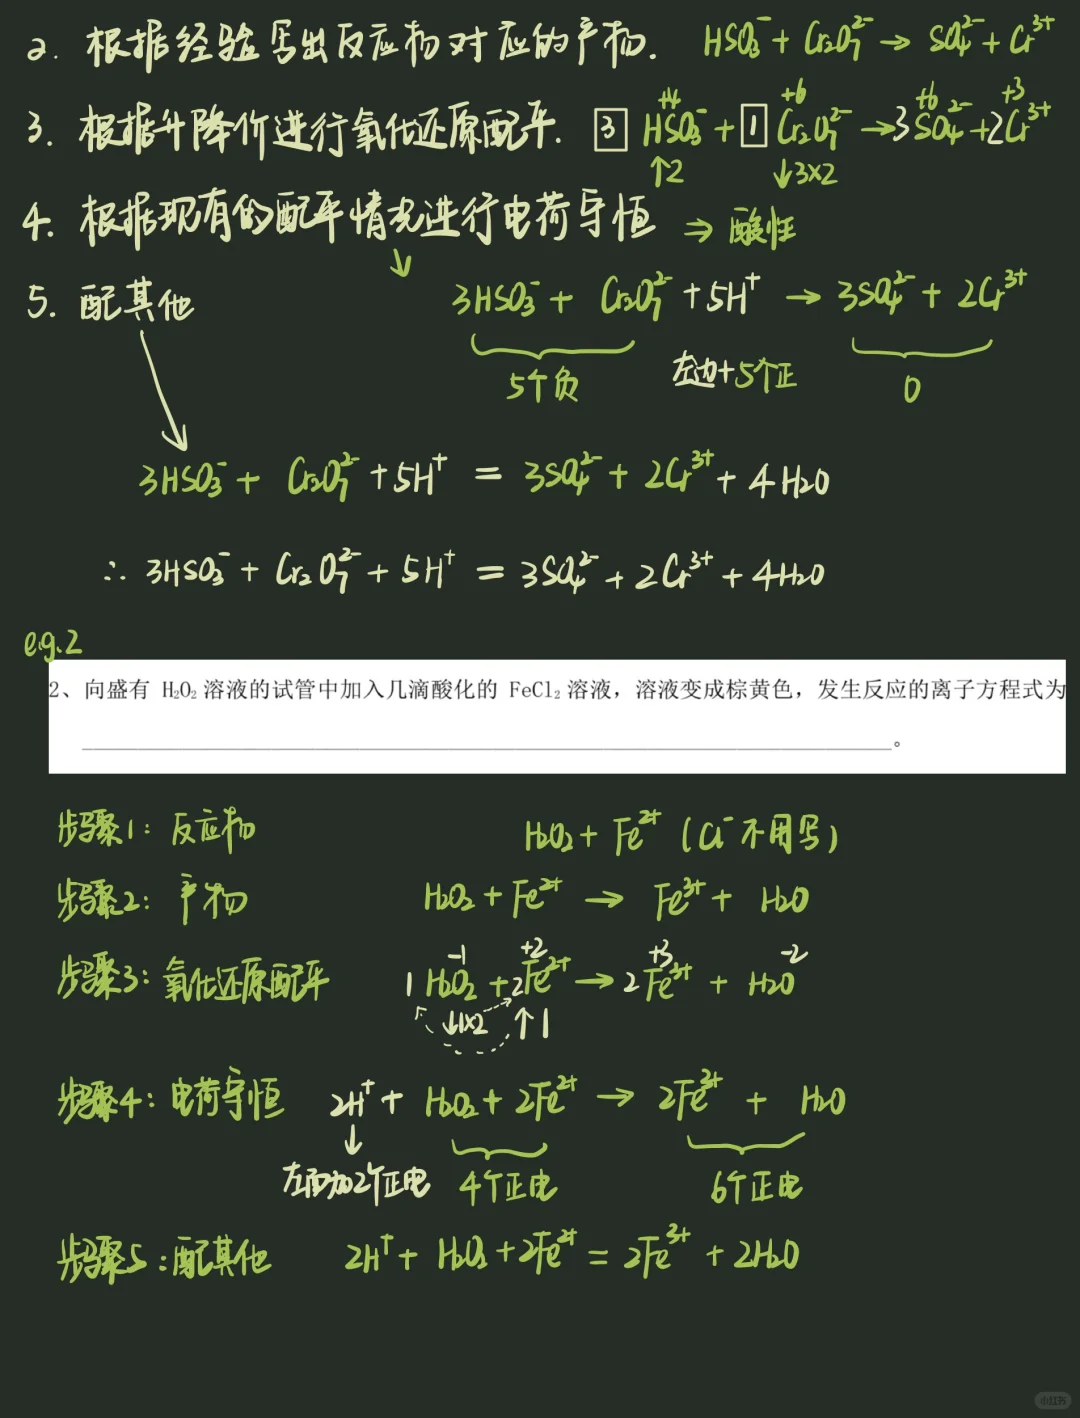 2. 根据经验写出反应物对应的产物. HSO₃⁻ + Cr₂O₇²⁻ → SO₄²⁻ + Cr³⁺
3. 根据升降价进行氧化还原配平. 3 HSO₃⁻ + 1 Cr₂O₇²⁻ → 3SO₄²⁻ + 2Cr³⁺
+4 +6 +6 +3
↑2 ↓3×2
4. 根据现有的配平情况进行电荷守恒 ⇒ 酸性
5. 配其他
3HSO₃⁻ + Cr₂O₇²⁻ + 5H⁺ → 3SO₄²⁻ + 2Cr³⁺
5个负 左边+5个正 0
3HSO₃⁻ + Cr₂O₇²⁻ + 5H⁺ = 3SO₄²⁻ + 2Cr³⁺ + 4H₂O
∴ 3HSO₃⁻ + Cr₂O₇²⁻ + 5H⁺ = 3SO₄²⁻ + 2Cr³⁺ + 4H₂O
e.g.2
2、向盛有 H₂O₂ 溶液的试管中加入几滴酸化的 FeCl₂ 溶液，溶液变成棕黄色，发生反应的离子方程式为
。
步骤1：反应物 H₂O₂ + Fe²⁺ (Cl⁻不用写)
步骤2：产物 H₂O₂ + Fe²⁺ → Fe³⁺ + H₂O
-1 +2 +3 -2
步骤3：氧化还原配平 1 H₂O₂ + 2Fe²⁺ → 2Fe³⁺ + H₂O
↓1×2 ↑1
步骤4：电荷守恒 2H⁺ + H₂O₂ + 2Fe²⁺ → 2Fe³⁺ + H₂O
左面加2个正电 4个正电 6个正电
步骤5：配其他 2H⁺ + H₂O₂ + 2Fe²⁺ = 2Fe³⁺ + 2H₂O
小红书